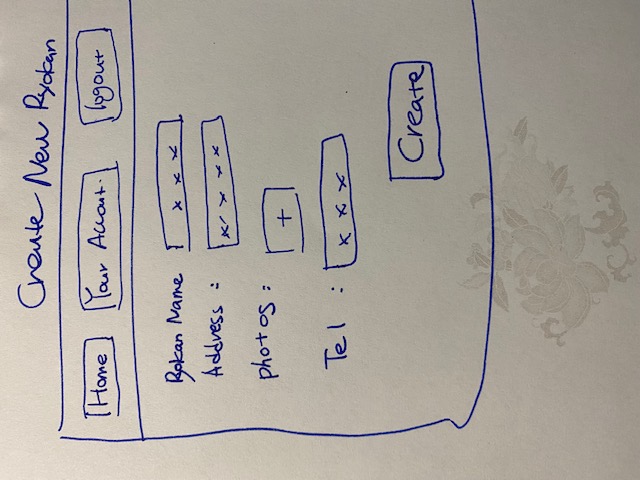 Create New Ryokan
Home Your Account. logout
Ryokan Name x x x
Address : x x x x
photos : +
Tel : x x x
Create